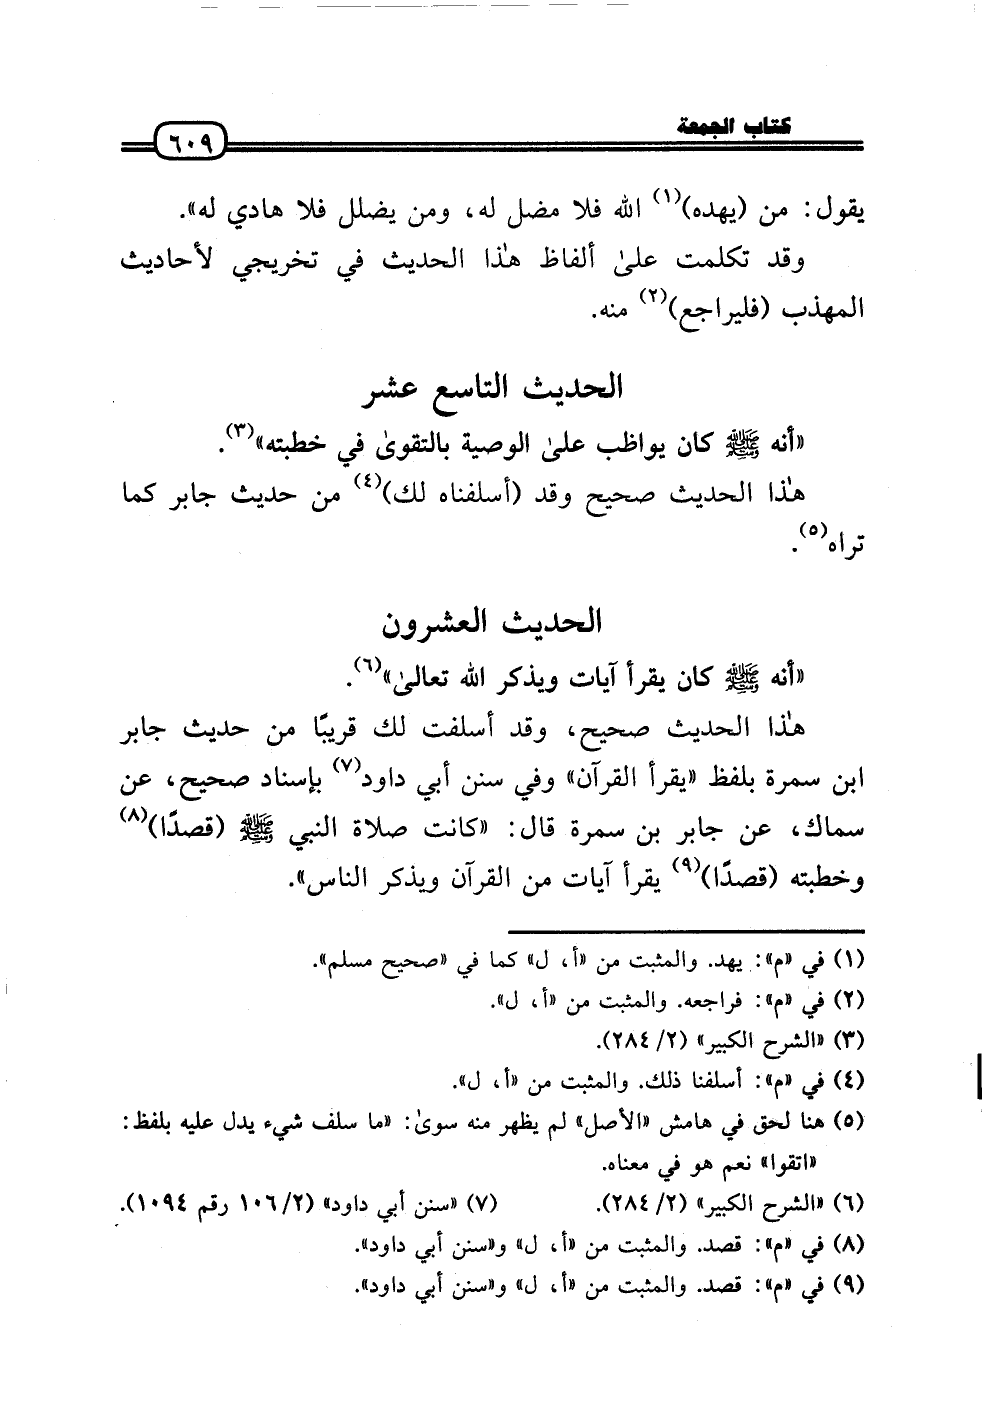 كتاب الجمعة
٦٠٩
يقول: من (يهده)(١) الله فلا مضل له، ومن يضلل فلا هادي له».
وقد تكلمت علىٰ ألفاظ هٰذا الحديث في تخريجي لأحاديث
المهذب (فليراجع)(٢) منه.
الحديث التاسع عشر
«أنه ﷺ كان يواظب علىٰ الوصية بالتقوىٰ في خطبته»(٣).
هٰذا الحديث صحيح وقد (أسلفناه لك)(٤) من حديث جابر كما
تراه(٥).
الحديث العشرون
«أنه ﷺ كان يقرأ آيات ويذكر الله تعالىٰ»(٦).
هٰذا الحديث صحيح، وقد أسلفت لك قريبًا من حديث جابر
ابن سمرة بلفظ «يقرأ القرآن» وفي سنن أبي داود(٧) بإسناد صحيح، عن
سماك، عن جابر بن سمرة قال: «كانت صلاة النبي ﷺ (قصدًا)(٨)
وخطبته (قصدًا)(٩) يقرأ آيات من القرآن ويذكر الناس».
(١) في «م»: يهد. والمثبت من «أ، ل» كما في «صحيح مسلم».
(٢) في «م»: فراجعه. والمثبت من «أ، ل».
(٣) «الشرح الكبير» (٢/ ٢٨٤).
(٤) في «م»: أسلفنا ذلك. والمثبت من «أ، ل».
(٥) هنا لحق في هامش «الأصل» لم يظهر منه سوىٰ: «ما سلف شيء يدل عليه بلفظ:
«اتقوا» نعم هو في معناه.
(٦) «الشرح الكبير» (٢/ ٢٨٤). (٧) «سنن أبي داود» (٢/ ١٠٦ رقم ١٠٩٤).
(٨) في «م»: قصد. والمثبت من «أ، ل» و«سنن أبي داود».
(٩) في «م»: قصد. والمثبت من «أ، ل» و«سنن أبي داود».